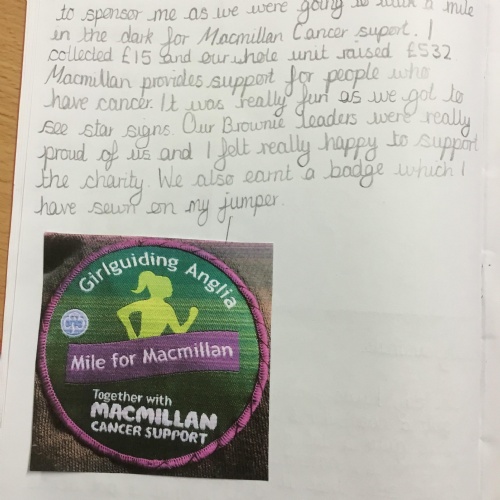 to sponser me as we were going to walk a mile
in the dark for Macmillan Cancer suport. I
collected £15 and our whole unit raised £532
Macmillan provides support for people who
have cancer. It was really fun as we got to
see star signs. Our Brownie leaders were really
proud of us and I felt really happy to support
the charity. We also earnt a badge which I
have sewn on my jumper.
Girlguiding Anglia
Mile for Macmillan
Together with
MACMILLAN
CANCER SUPPORT